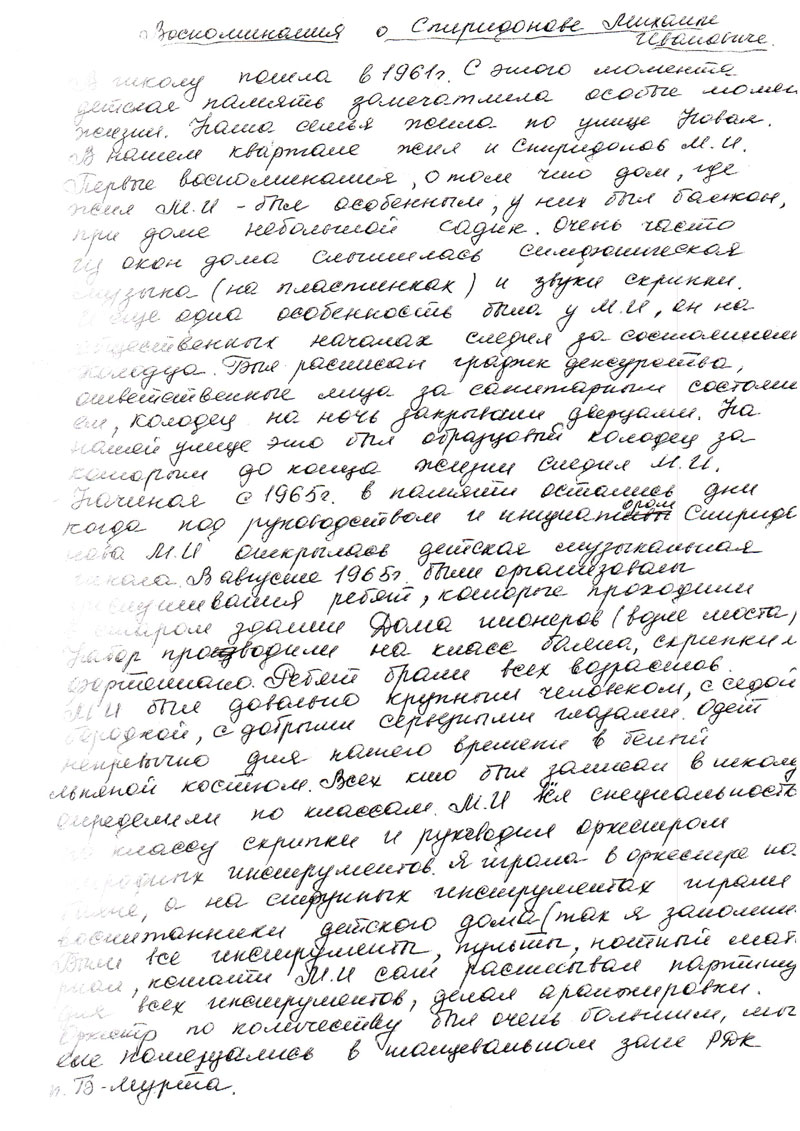 Воспоминания о Спиридонове Михаиле
Ивановиче.
В школу пошла в 1961г. С этого момента
детская память запечатлила особые момен
жизни. Наша семья жила по улице Новая.
В нашем квартале жил и Спиридонов М.И.
Первые воспоминания, о том что дом, где
жил М.И - был особенным, у них был балкон,
при доме небольшой садик. Очень часто
из окон дома слышилась симфоническая
музыка (на пластинках) и звуки скрипки.
И еще одна особенность была у М.И, он на
общественных началах следил за состоянием
колодца. Был расписан график дежурства,
ответственные лица за санитарным состояни
ем, колодец на ночь закрывали дверцами. На
нашей улице это был образцовый колодец за
которым до конца жизни следил М.И.
Начиная с 1965г. в памяти остались дни
когда под руководством и инициатором Спиридо
нова М.И открылась детская музыкальная
школа. В августе 1965г. были организованы
прослушивания ребят, которые проходили
в старом здании Дома пионеров (возле моста)
Набор производили на класс баяна, скрипки и
фортепиано. Ребят брали всех возрастов.
М.И был довольно крупным человеком, с седой
бородкой, с добрыми серьезными глазами. Одет
непревычно для нашего времени в белый
льняной костюм. Всех кто был записан в школу
определили по классам. М.И вёл специальность
по классу скрипки и руководил оркестром
народных инструментов. Я играла в оркестре на
баяне, а на струнных инструментах играли
воспитанники детского дома (так я запомни
Были все инструменты, пульты, нотный мате
риал, кстати М.И сам расписывал партиту
для всех инструментов, делал аранжировки.
Оркестр по количеству был очень большим, мы
еле помещались в танцевальном зале РДК
п. Б-Мурта.